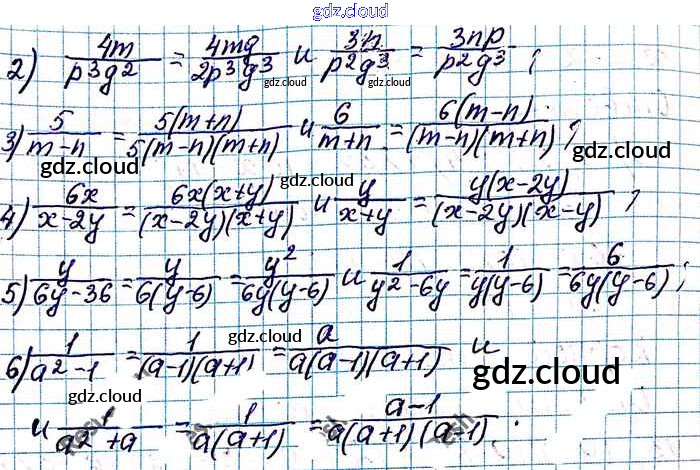 gdz.cloud
2) 4m/(p³g²) = 4mg/(2p³g³) и 3n/(p²g³) = 3np/(p²g³) ;
gdz.cloud gdz.cloud
3) 5/(m-n) = 5(m+n)/(5(m-n)(m+n)) и 6/(m+n) = 6(m-n)/((m-n)(m+n)) ;
gdz.cloud gdz.cloud
4) 6x/(x-2y) = 6x(x+y)/((x-2y)(x+y)) и y/(x+y) = y(x-2y)/((x-2y)(x-y)) ;
gdz.cloud gdz.cloud
5) y/(6y-36) = y/(6(y-6)) = y²/(6y(y-6)) и 1/(y²-6y) = 1/(y(y-6)) = 6/(6y(y-6)) ;
gdz.cloud gdz.cloud
6) 1/(a²-1) = 1/((a-1)(a+1)) = a/(a(a-1)(a+1)) и
gdz.cloud gdz.cloud gdz.cloud
и 1/(a²+a) = 1/(a(a+1)) = (a-1)/(a(a+1)(a-1)) .